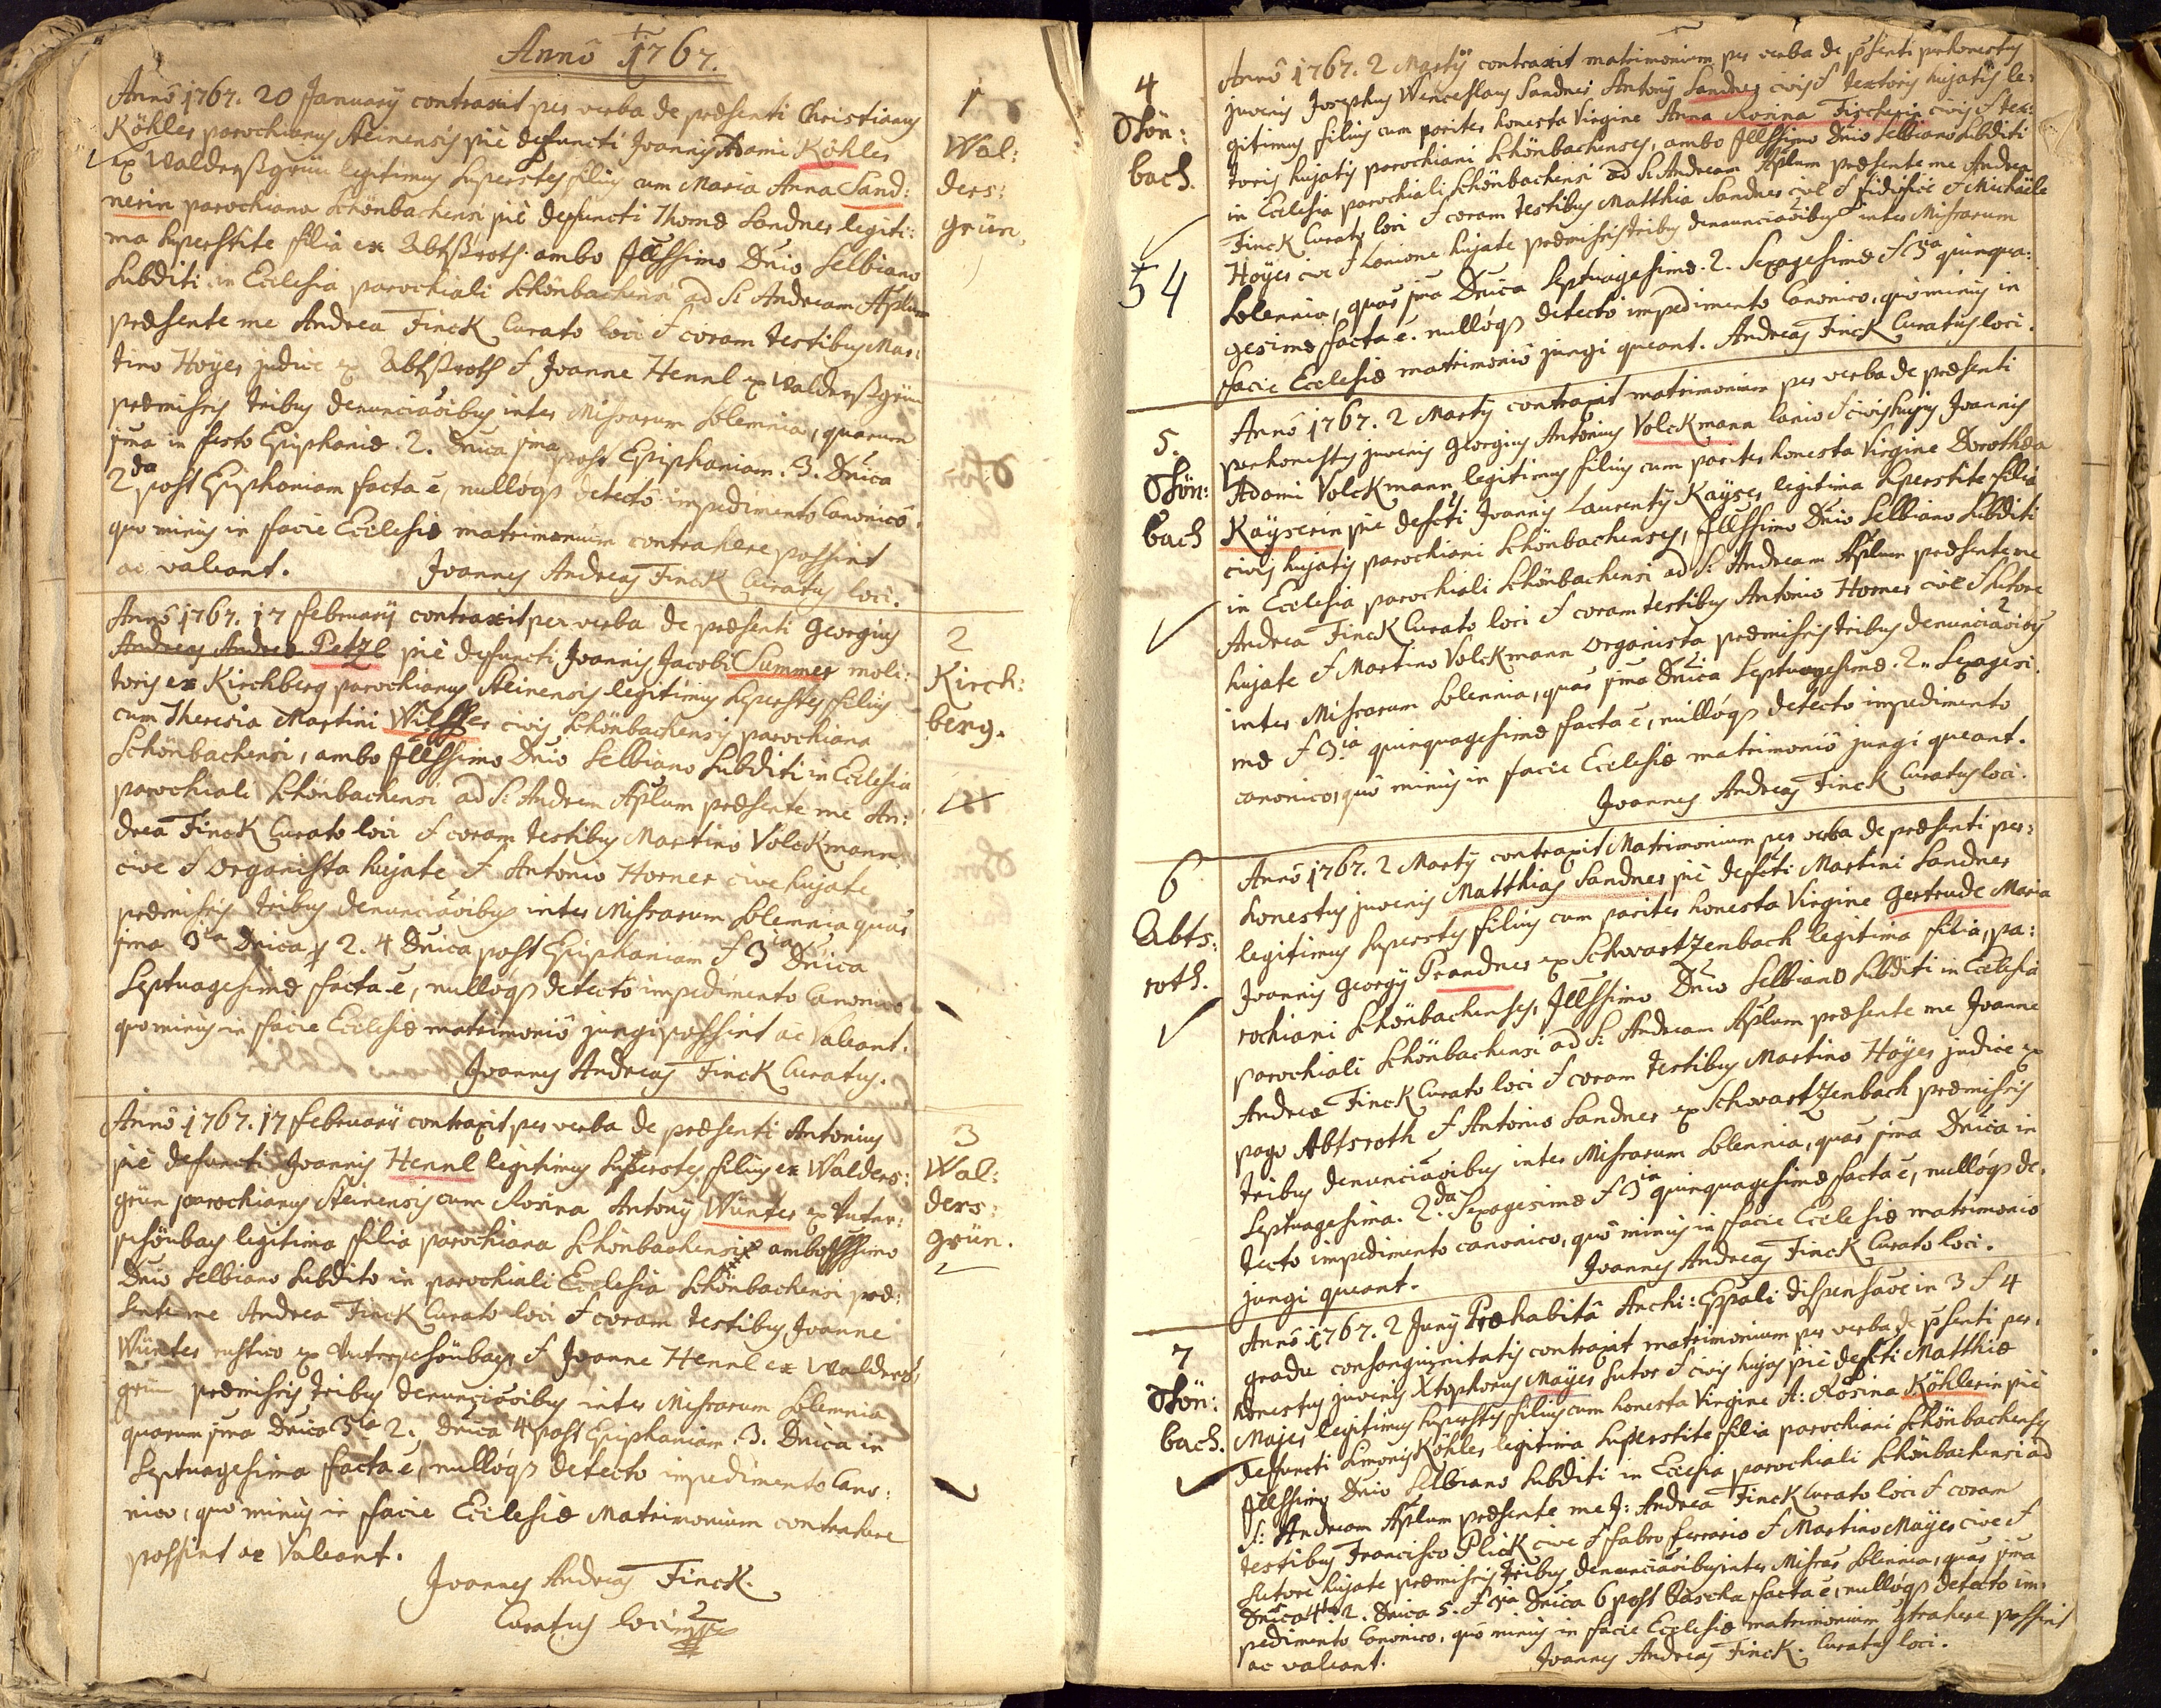 Annô 1767.
Annô 1767. 20 Januarÿ contraxit per verba de præsenti Christianus
Köhler parochianus Steinensis piè defuncti Joannis Adami Köhler
ex Waldersßgrün legitimus superstes filius cum Maria Anna Sand:
nerin parochiana Schönbachensi piè defuncti Thomæ Sandner legiti:
ma superstite filia ex Abtßroth. ambo Jllssimo Dnio Selbiano
Subditi in Ecclesia parochiali Schönbachensi ad S: Andream Aplum
præsente me Andrea Finck Curato loci & coram testibus Mar:
tino Hoÿer judice ex Abtßroth & Joanne Hennl ex Waldersßgrün
præmissis tribus denunciaõibus inter Missarum solemnia, quarum
jma in festo Epiphaniæ. 2. Dnica jma post Epiphaniam. 3. Dnica
2da post Epiphaniam facta ē, nulloqz detecto impedimento Canonico,
quo minus in facie Ecclesiæ matrimonium contrahere possint
ac valeant. Joannes Andreas Finck Curatus loci.
1
Wal:
ders:
grün.
Annô 1767. 17 Februarÿ contraxit per verba de præsenti Georgius
Andreas Andreæ Petzl piè defuncti Joannis Jacobi Summer moli:
toris ex Kirchberg parochianus Steinensis legitimus superstes filius
cum Theresia Martini Wilffer civis Schönbachensis parochiana
Schönbachensi, ambo Jllssimo Dnio Selbiano Subditi in Ecclesia
parochiali Schönbachensi ad S: Andream Aplum præsente me An:
drea Finck Curato loci & coram testibus Martino Volckmann
cive & Organista hujate & Antonio Horner cive hujate
præmissis tribus denunciaõibus inter Missarum solemnia quas
jma 3a Dnica, 2. 4 Dnica post Epiphaniam & 3ia Dnica
Septuagesimæ facta ē, nulloqz detecto impedimento Canonico
quo minus in facie Ecclesiæ matrimoniô jungi possint ac valeant.
Joannes Andreas Finck Curatus.
2
Kirch:
berg.
Annô 1767. 17 Februarii contraxit per verba de præsenti Antonius
piè defuncti Joannis Hennl legitimus superstes filius ex Walders:
grün parochianus Steinensis cum Rosina Antonÿ Wünter ex Unter:
schönbach legitima filia parochiana Schönbachensi ambo Jllssimo
Dnio Selbiano Subdito in parochiali Ecclesia Schönbachensi præ:
sente me Andrea Finck Curato loci & coram testibus Joanne
Wünter rustico ex Unterschönbach & Joanne Hennl ex Walders:
grün præmissis tribus denunciaõibus inter Missarum solemnia
quarum jma Dnica 3a 2. Dnica 4 post Epiphaniam. 3. Dnica in
Septuagesima facta ē, nulloqz detecto impedimento Cano:
nico, quo minus in facie Ecclesiæ Matrimonium contrahere
possint ac valeant.
Joannes Andreas Finck.
Curatus loci
3
Wal:
ders:
grün.
4
Schön:
bach.
54
Annô 1767. 2 Martÿ contraxit matrimonium per verba de psenti perhonestus
juvenis Josephus Wenceslaus Sandner Antonÿ Sandner civis & textoris hujatis le:
gitimus filius cum pariter honesta Virgine Anna Rosina Fischerin civis & tex:
toris hujatis parochiani Schönbachenses, ambo Jllssimo Dnio Selbiano Subditi
in Ecclesia parochiali Schönbachensi ad S: Andream Aplum præsente me Andrea
Finck Curato loci & coram testibus Matthia Sandner cive & fidifice & Michaële
Hoÿer cive & Lanione hujate præmissis tribus denunciaõibus inter Missarum
Solennia, quas jma Dnica Septuagesimæ. 2. Sexagesimæ & 3ia quinqua:
gesimæ facta ē. nulloqz detecto impedimento Canonico, quo minus in
facie Ecclesiæ matrimoniô jungi queant. Andreas Finck Curatus loci.
5.
Schön:
bach
Annô 1767. 2 Martÿ contraxit matrimonium per verba de præsenti
perhonestus juvenis Georgius Antonius Volckmann lanio & civis hujus Joannis
Adami Volckmann legitimus filius cum pariter honesta Virgine Dorothea
Kaÿserin piè defcti Joannis Laurentÿ Kaÿser legitima superstite filia
civis hujatis parochiani Schönbachenses, Jllssimo Dnio Selbiano Subditi
in Ecclesia parochiali Schönbachensi ad S: Andream Aplum præsente me
Andrea Finck Curato loci & coram testibus Antonio Horner cive Sutore
hujate & Martino Volckmann Organista præmissis tribus denunciaõibus
inter Missarum Solennia, quas jma Dnica Septuagesimæ. 2. Sexagesi:
mæ & 3.ia quinquagesimæ facta ē, nulloqz detecto impedimento
canonico, quo minus in facie Ecclesiæ matrimoniô jungi queant.
Joannes Andreas Finck Curatus loci.
6
Abts:
roth.
Annô 1767. 2 Martÿ contraxit Matrimonium per verba de præsenti per:
honestus juvenis Matthias Sandner piè defcti Martini Sandner
legitimus superstes filius cum pariter honesta Virgine Gertrude Maria
Joannis Georgÿ Prandner ex Schwartzenbach legitima filia, pa:
rochiani Schönbachenses, Jllssimo Dnio Selbiano Subditi in Ecclesia
parochiali Schönbachensi ad S: Andream Aplum præsente me Joanne
Andrea Finck Curato loci & coram testibus Martino Hoÿer judice ex
pago Abtsroth & Antonio Sandner ex Schwartzenbach præmissis
tribus denunciaõibus inter Missarum Solennia, quas jma Dnica in
Septuagesima. 2.da Sexagesimæ & 3ia quinquagesimæ facta ē, nulloqz de:
tecto impedimento canonico, quo minus in facie Ecclesiæ matrimonio
jungi queant. Joannes Andreas Finck Curato loci.
7
Schön:
bach.
Annô 1767. 2 Junÿ Præhabitâ Archi: Eppali dispensaõe in 3 & 4
gradu consanguinitatis contraxit matrimonium per verba de psenti per:
honestus juvenis Xtophorus Mayer Sutor & civis hujas piè defcti Matthiæ
Majer legitimus superstes filius cum honesta Virgine A: Rosina Köhlerin piè
defuncti Simonis Köhler legitima superstite filia parochiani Schönbachenses
Jllssimo Dnio Selbiano Subditi in Ecclesia parochiali Schönbachensi ad
S: Andream Aplum præsente me J: Andrea Finck Curato loci & coram
testibus Francisco Plick cive & fabro ferrario & Martino Maÿer cive &
Sutore hujate præmissis tribus denunciaõibus inter Missas Solennia, quas jma
Dnica 4ta 2. Dnica 5. & 3ia Dnica 6 post Pascha facta ē, nulloqz detecto im:
pedimento Canonico, quo minus in facie Ecclesiæ matrimonium ctrahere possint
ac valeant. Joannes Andreas Finck. Curatus loci.